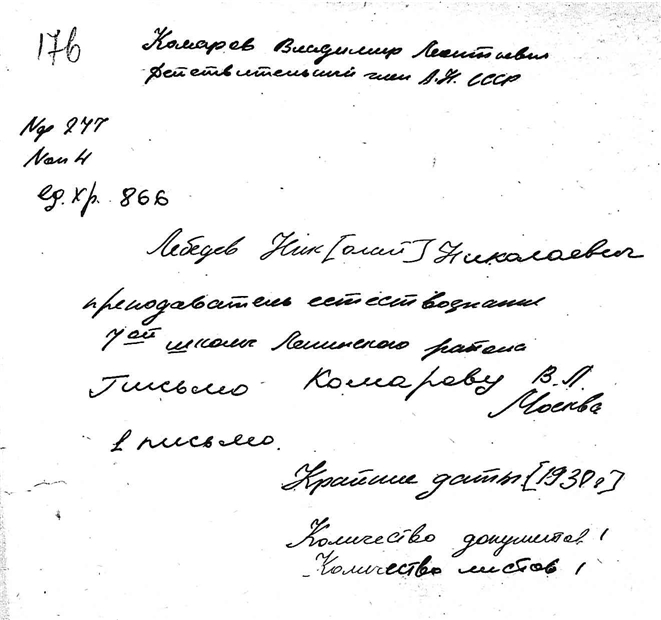 176
Комаров Владимир Леонтьевич
действительный член А.Н. СССР
№ф 277
№оп 4
ед. хр. 866
Лебедев Ник[олай] Николаевич
преподаватель естествознания
7ой школы Ленинского района
Письмо Комарову В.Л.
Москва
1 письмо.
Крайние даты [1938 г]
Количество документов 1
Количество листов 1